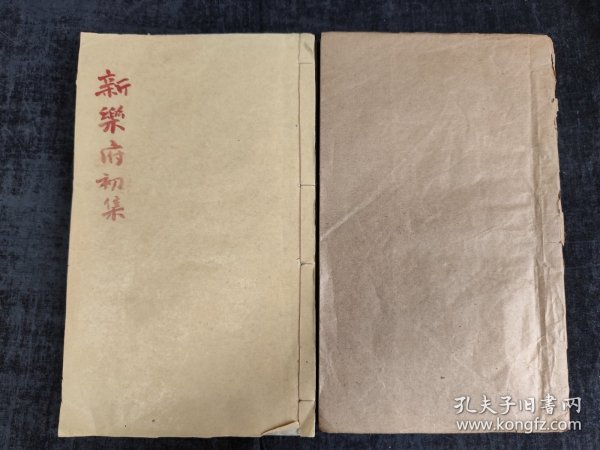 新樂府初集
孔夫子旧书网
www.kongfz.com